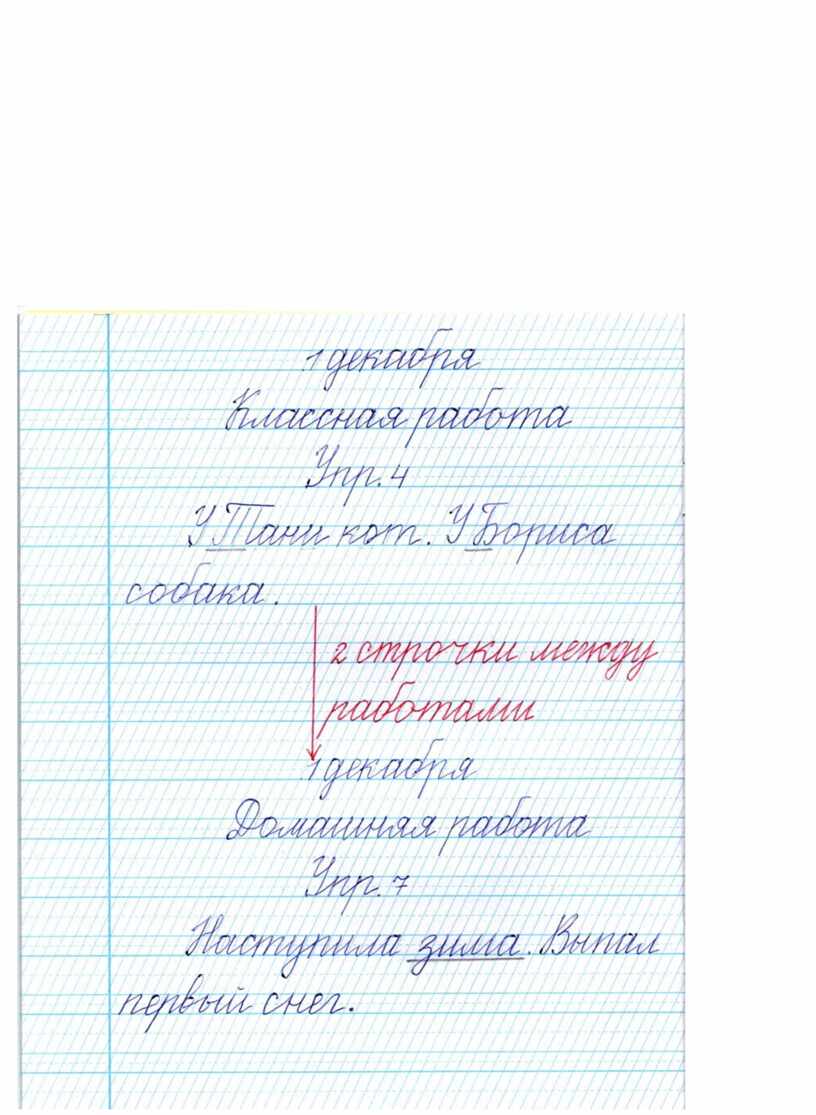 1 декабря
Классная работа
Упр. 4
У Тани кот. У Бориса
собака.
2 строчки между
работами
1 декабря
Домашняя работа
Упр. 7
Наступила зима. Выпал
первый снег.